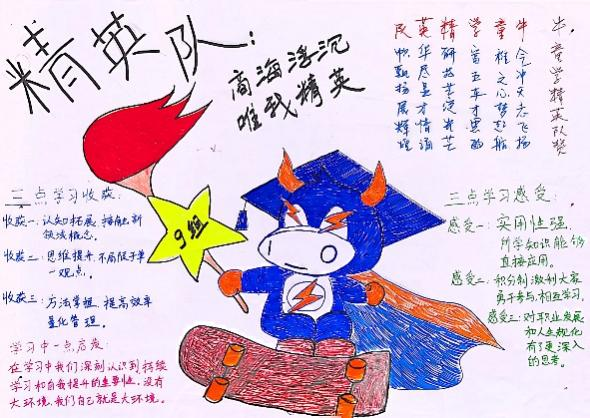 精英队：
商海浮沉
唯我精英
牛童学精英队赞
牛气冲天志飞扬
童稚之心梦起航
学富五车才思
精研技艺绽光芒
英华尽显才情涌
队帜飘扬展辉煌
9组
三点学习收获：
收获一：认知拓展，接触新
领域概念。
收获二：思维提升，不局限于单
一观点。
收获三：方法掌握，提高效率
量化管理。
学习中一点启发：
在学习中我们深刻认识到持续
学习和自我提升的重要性，没有
大环境，我们自己就是大环境。
三点学习感受：
感受一：实用性强，
所学知识能够
直接应用。
感受二：积分制激利大家
勇于参与，相互学习。
感受三：对职业发展
和人生规化
有了更深入
的思考。